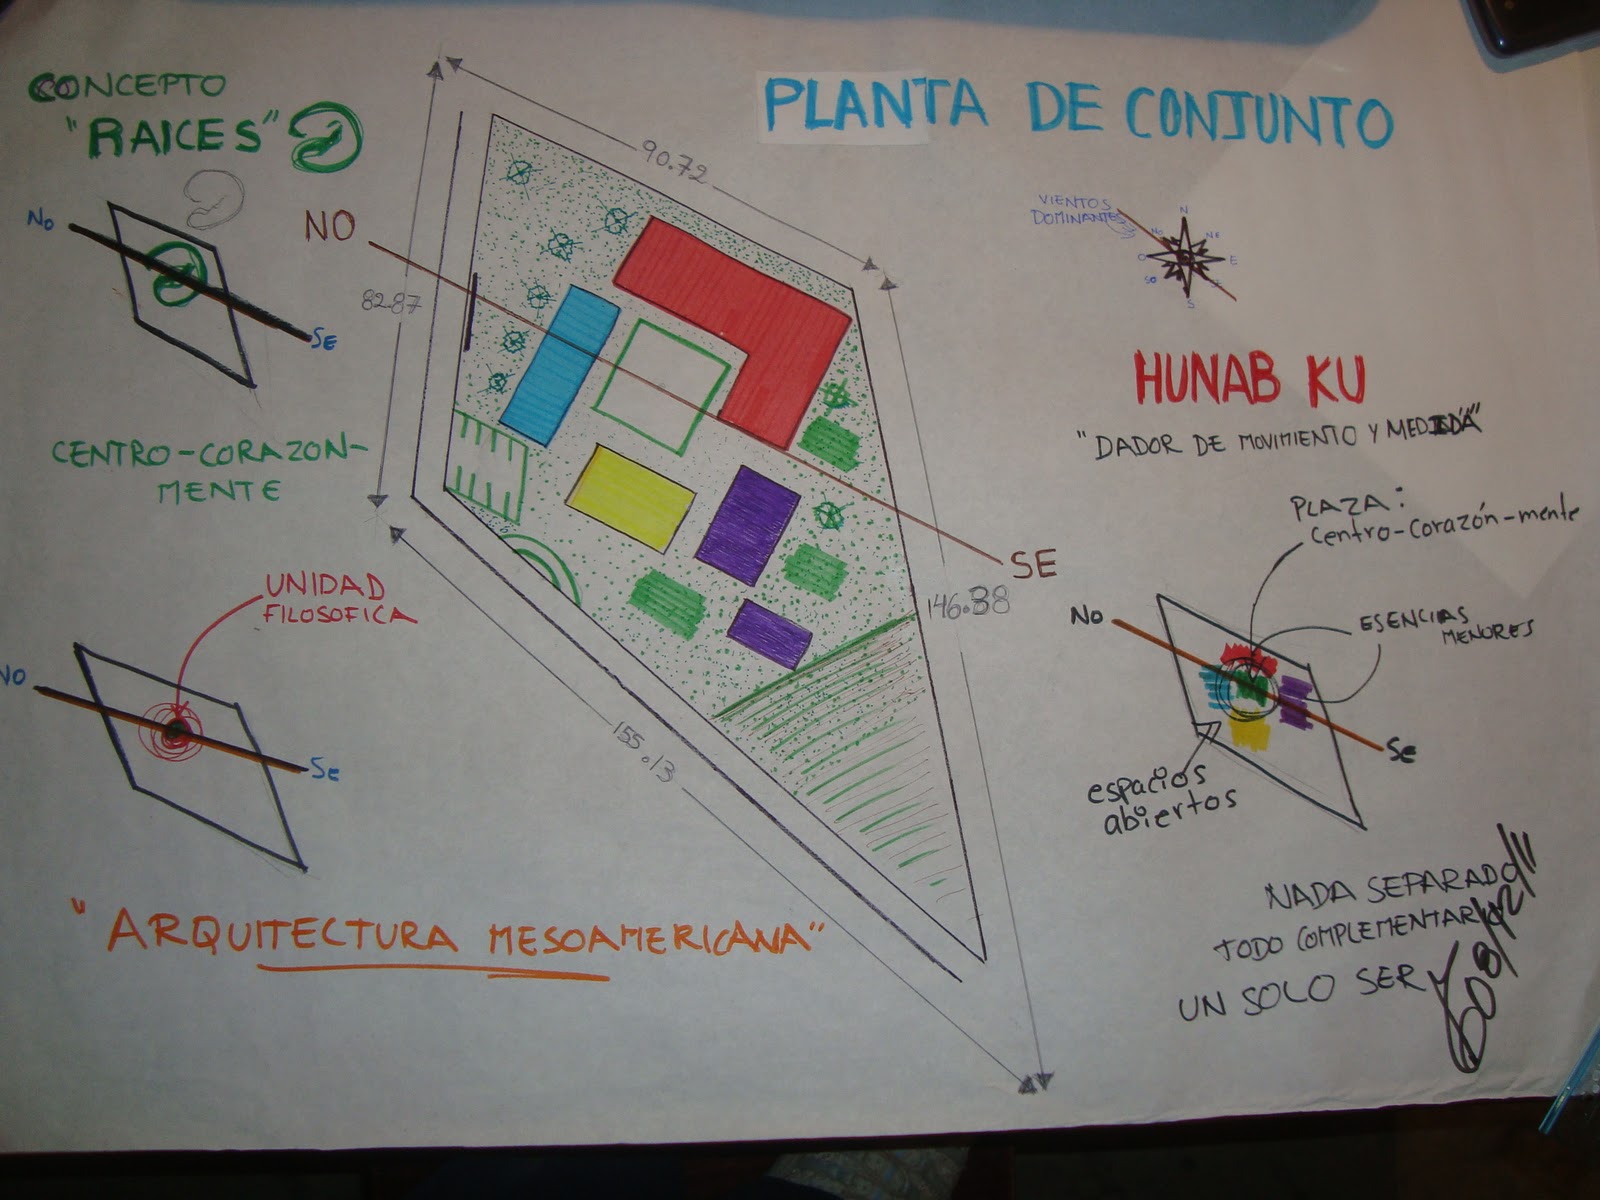 CONCEPTO
"RAICES"
NO
SE
CENTRO-CORAZON-
MENTE
UNIDAD
FILOSOFICA
NO
Se
"ARQUITECTURA MESOAMERICANA"
PLANTA DE CONJUNTO
90.72
82.87
146.38
155.13
NO
SE
VIENTOS
DOMINANTES
N
NO
NE
O
E
SO
S
HUNAB KU
"DADOR DE MOVIMIENTO Y MEDIDA"
PLAZA:
Centro-corazón-mente
ESENCIAS
MENORES
NO
Se
espacios
abiertos
NADA SEPARADO
TODO COMPLEMENTARIO
UN SOLO SER